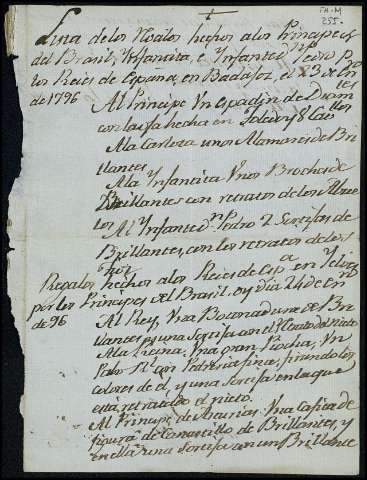 +
FH-M
255-
Lista de los Regalos hechos a los Principes
del Brasil, Ynfantita, e Ynfante Dn Pedro pr
los Reies de España, en Badajoz el 23 de Enro
de 1796
Al Principe Un espadin de Diamtes
con la oja hecha en Toledo y 8 Cavallos
A la Carlota unos Alamares de Bri
llantes
A la Ynfantita Vnos Broches de
Brillantes con retratos de los Abue
los
Al Ynfante Dn Pedro 2 Sortijas de
Brillantes, con los retratos de los
Regalos hechos a los Reies de Espa en Yelves
por los Principes del Brasil, oy dia 24 de Enro
de 96
Al Rey, Vna Botonadura de Bri
llantes y una Sortija con el retrato del Nieto
A la Reina, Vna gran Piocha, Vn
Pabo Rl con Pedreria fina, finjendo los
colores de el, y una Sortija en la que
está retratado el nieto.
Al Principe de Asturias, Vna Cajita de
figura de Canastillo de Brillantes, y
en ella una Sortija con un Brillante